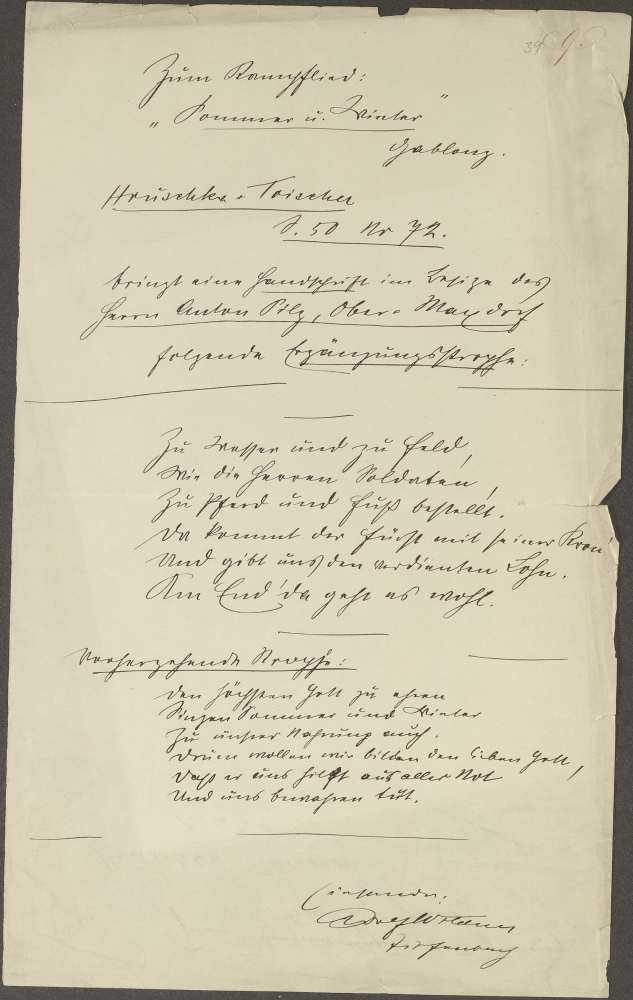 39 9.
Zum Kampflied:
"Sommer u. Winter"
Gablonz.
Hruschka-Toischer
S. 50 Nr 72.
bringt eine Handschrift im Besize des
Herrn Anton Pilz, Ober-Maxdorf
folgende Ergänzungsstrophe:
Zu Wasser und zu Feld,
Wie die Herren Soldaten,
Zu Pferd und Fuß bestellt.
Da kommt der Fürst mit seiner Kron'
Und gibt uns den verdienten Lohn.
Am End' da geht es wohl.
Vorhergehende Strophe:
Den höchsten Gott zu ehren
Singen Sommer und Winter
Zu unsrer Nahrung auch.
Drum wollen wir bitten den lieben Gott,
Daß er uns hilft aus aller Not
Und uns bewahren tut.
Einsender:
Tiefenbach